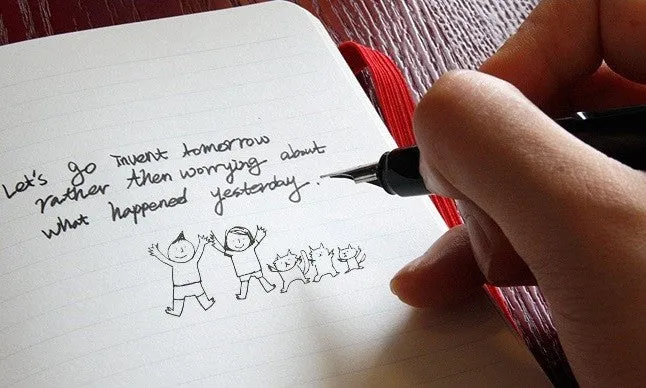 Let's go invent tomorrow
rather then worrying about
what happened yesterday.